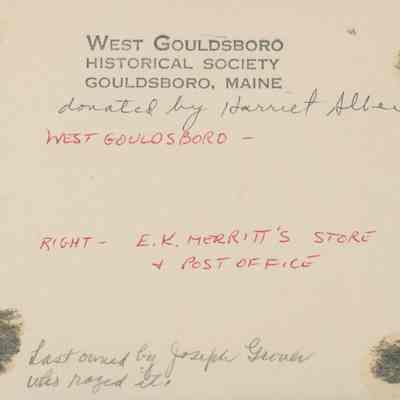 WEST GOULDSBORO
HISTORICAL SOCIETY
GOULDSBORO, MAINE
donated by Harriet
WEST GOULDSBORO -
RIGHT - E.K. MERRITT'S STORE
& POST OFFICE
Last owned by Joseph Grover
who razed it.